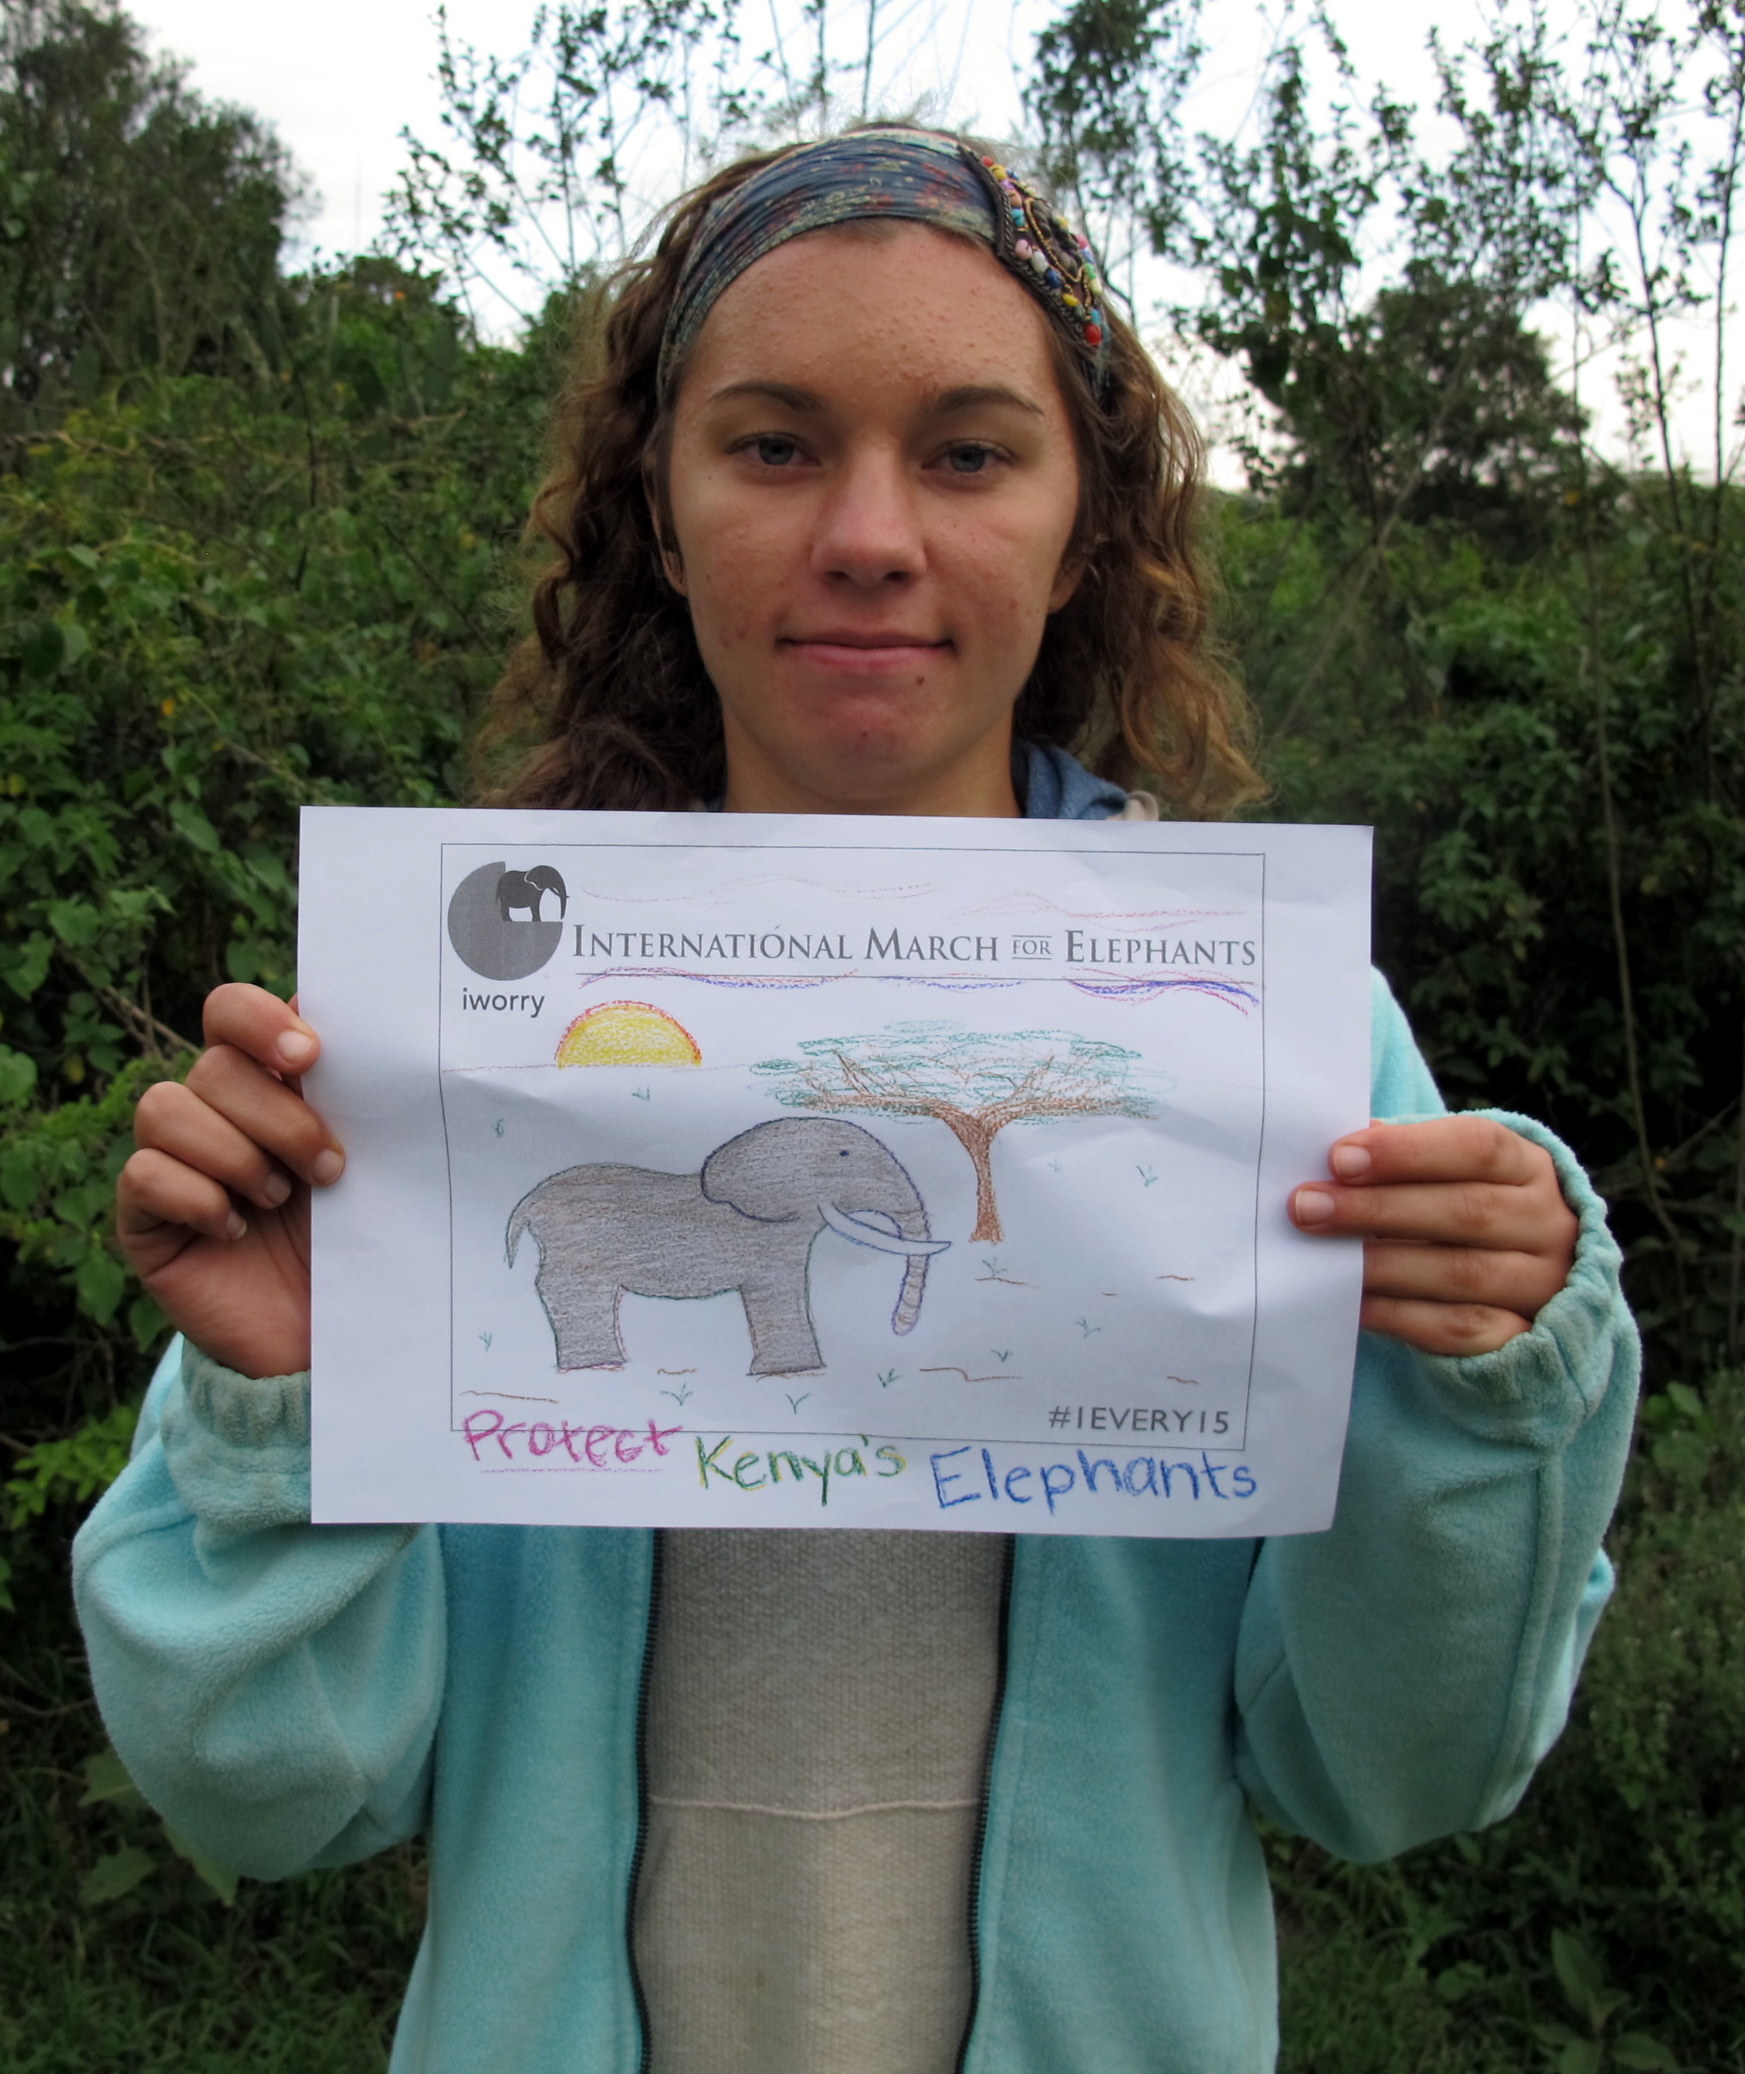 INTERNATIONAL MARCH FOR ELEPHANTS
iworry
#1EVERY15
Protect Kenya's Elephants